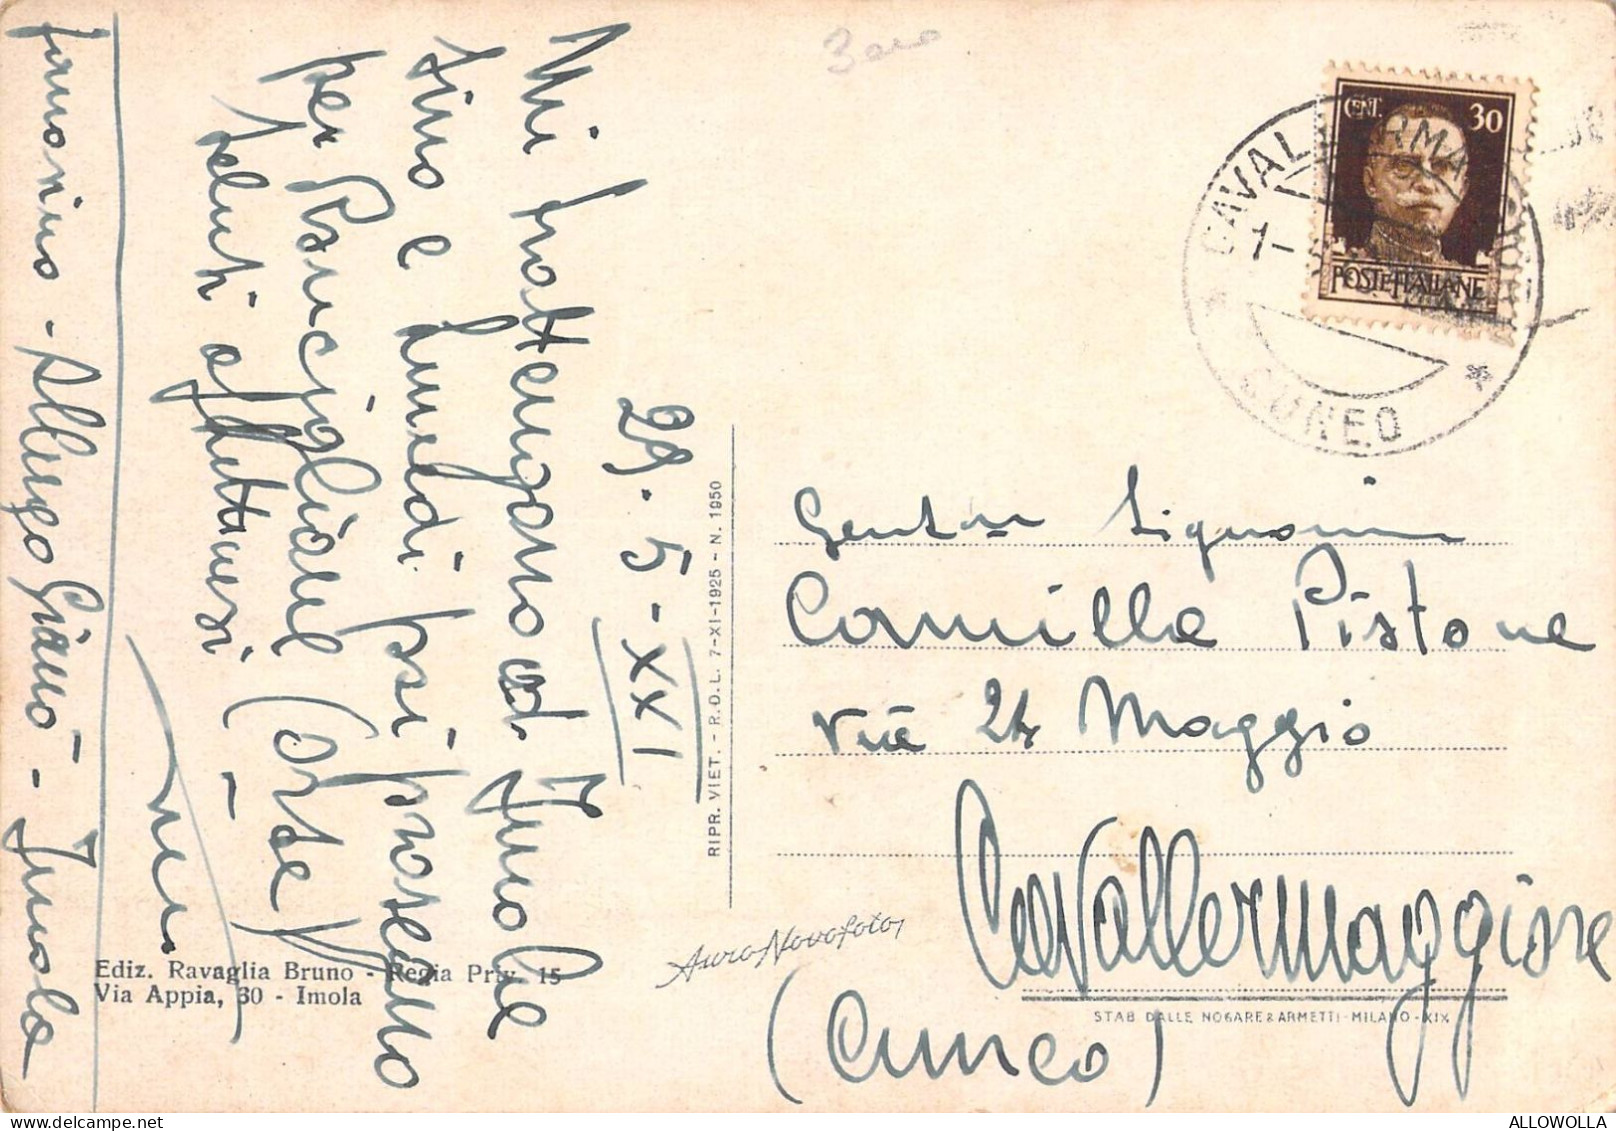 29.5-XXI
Mi trattengono ad Imola
fino a lunedì poi proseguo
per
saluti affettuosi -
fermo
Albergo
Imola
Ediz. Ravaglia Bruno - Regia Priv. 15
Via Appia, 30 - Imola
RIPR. VIET. - R.D.L. 7-XI-1925 - N. 1950
AuroNovofoto
CENT. 30
POSTE ITALIANE
CUNEO
Signorina
Camilla Pistone
Via 24 Maggio
Cavallermaggiore
(Cuneo)
STAB DALLE NOGARE & ARMETTI - MILANO - XIX
ALLOWOLLA